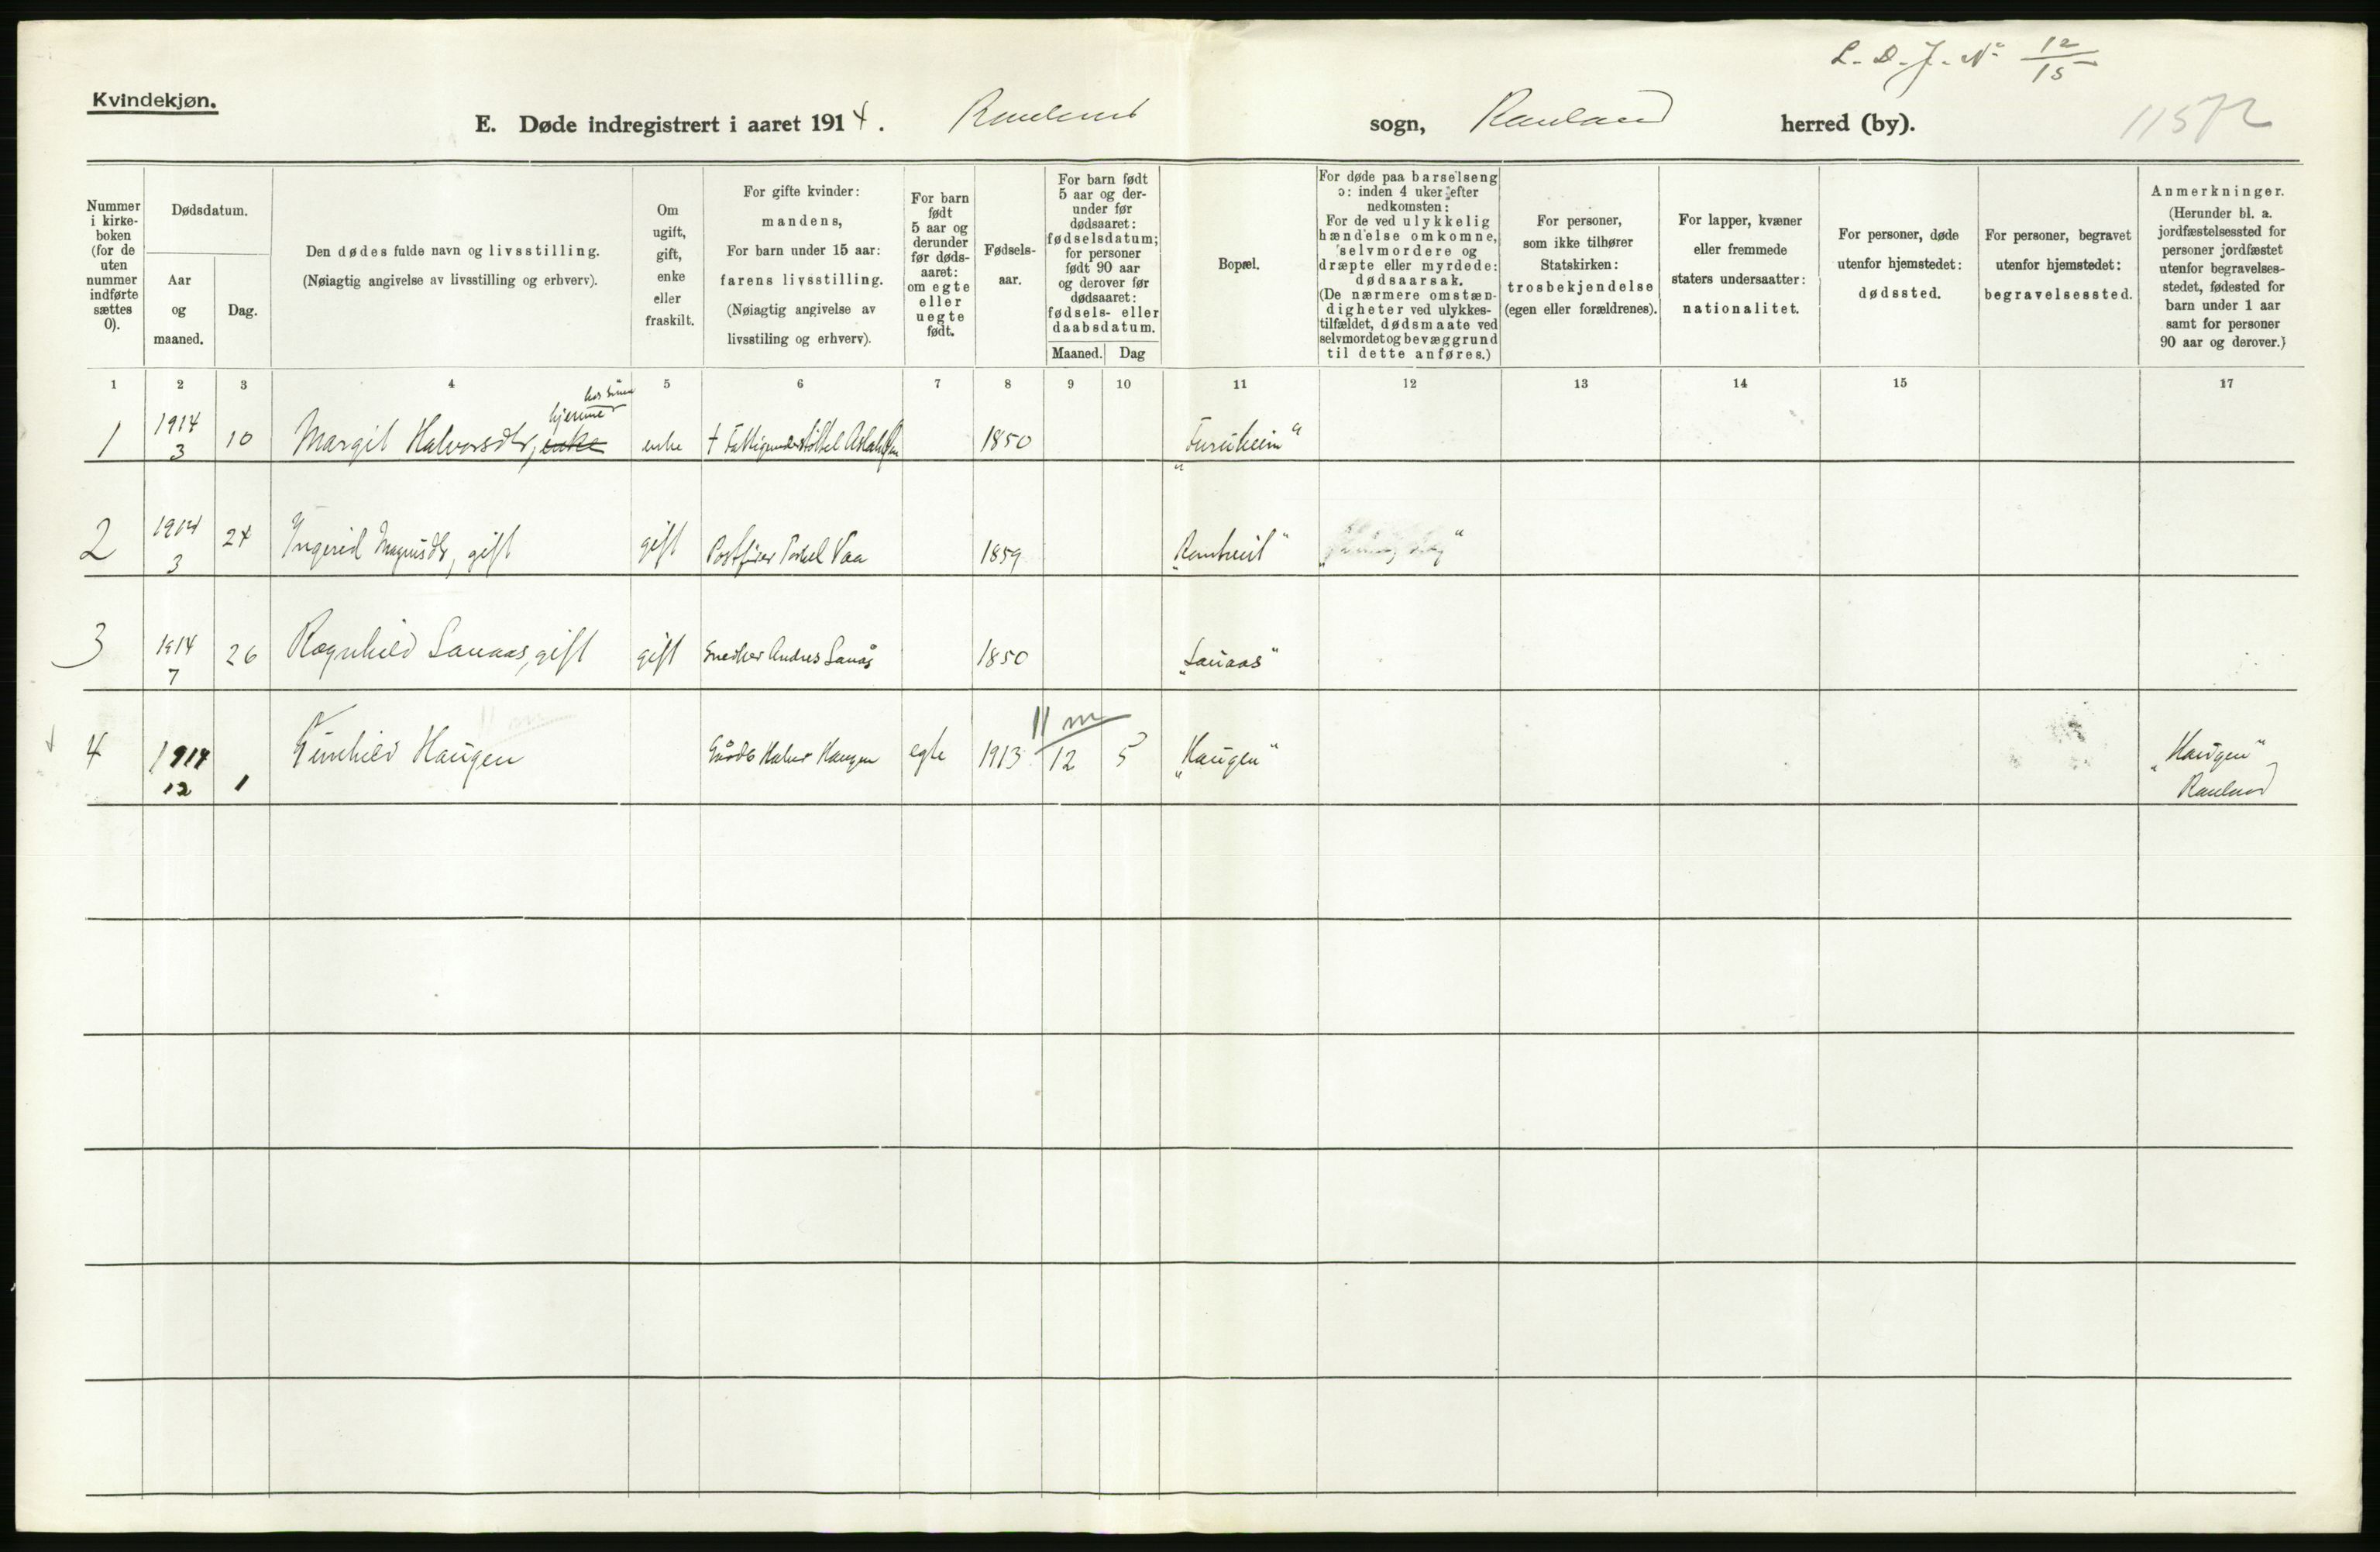 L. D. J. No 12/15
Kvindekjøn.
E. Døde indregistrert i aaret 1914. Rauland sogn, Rauland herred (by).
1157
Nummer i kirke-boken (for de uten nummer indførte sættes 0).
Dødsdatum.
Aar og maaned.
Dag.
Den dødes fulde navn og livsstilling.
(Nøiagtig angivelse av livsstilling og erhverv).
Om ugift, gift, enke eller fraskilt.
For gifte kvinder: mandens,
For barn under 15 aar: farens livsstilling.
(Nøiagtig angivelse av livsstiling og erhverv).
For barn født 5 aar og derunder før døds-aaret: om egte eller uegte født.
Fødsels-aar.
For barn født 5 aar og der-under før dødsaaret: fødselsdatum; for personer født 90 aar og derover før dødsaaret: fødsels- eller daabsdatum.
Maaned. Dag
Bopæl.
For døde paa barselseng ɔ: inden 4 uker efter nedkomsten:
For de ved ulykkelig hændelse omkomne, selvmordere og dræpte eller myrdede: dødsaarsak.
(De nærmere omstæn-digheter ved ulykkes-tilfældet, dødsmaate ved selvmordet og bevæggrund til dette anføres.)
For personer, som ikke tilhører Statskirken: trosbekjendelse (egen eller forældrenes).
For lapper, kvæner eller fremmede staters undersaatter: nationalitet.
For personer, døde utenfor hjemstedet: dødssted.
For personer, begravet utenfor hjemstedet: begravelsessted.
Anmerkninger.
(Herunder bl. a. jordfæstelsessted for personer jordfæstet utenfor begravelses-stedet, fødested for barn under 1 aar samt for personer 90 aar og derover.)
1 2 3 4 5 6 7 8 9 10 11 12 13 14 15 17
hjemme
1 1914 3 10 Margit Halvorsdtr, enke enke † 1850 "Furuheim"
2 1914 3 24 Ingerid Magnisdtr, gift gift Vaa 1859
3 1914 7 26 Ragnhild Sanaas, gift gift Snedker Andres Sanås 1850 "Sanaas"
11 m
4 1914 12 1 Gunhild Haugen Gårdb Halvor Haugen egte 1913 12 5 "Haugen" "Haugen" Rauland